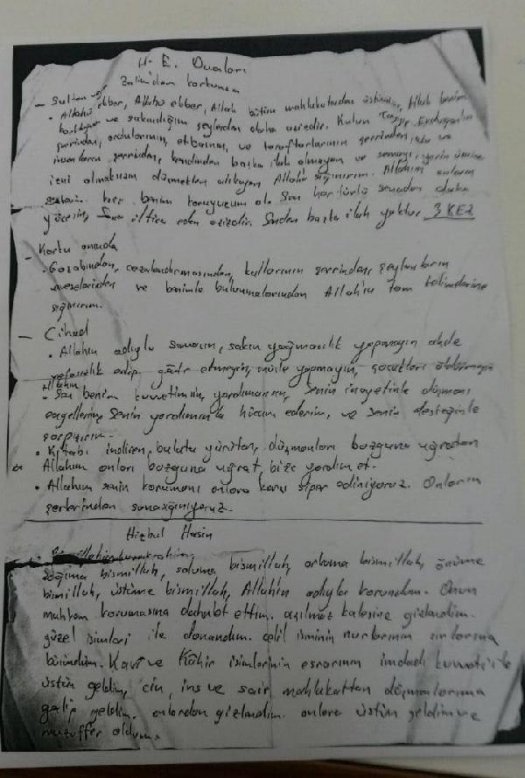 H. E. Duaları
Zalimden korkunca
- Sultan veya
• Allahu ekber, Allahu ekber, Allah bütün mahlukatından üstündür, Allah benim
korktuğum ve sakındığım şeylerden daha azizdir. Kulun
şerrinden, ordularının, etbaının, ve taraftarlarının şerrinden, cin ve
insanların şerrinden, kendinden başka ilah olmayan ve semayı yerin üzerine
izni olmaksızın düşmekten alıkoyan Allah'a sığınırım. Allahım onların
şerrinden benim koruyucum ol. Sen her türlü senadan daha
yücesin, Sana iltica eden azizdir. Senden başka ilah yoktur. 3 KEZ
- Korku anında
• Gazabından, cezalandırmasından, kullarının şerrinden, şeytanların
vesveselerinden ve benimle bulunmalarından Allah'ın tam kelimelerine
sığınırım.
- Cihad
• Allahın adıyla savaşın, sakın yağmacılık yapmayın ahde
vefasızlık edip gadr etmeyin, müsle yapmayın, çocukları öldürmeyin
Allahım
• Sen benim kuvvetimsin, yardımcımsın, Senin inayetinle düşmanı
engellerim, Senin yardımınla hücum ederim, ve Senin desteğinle
çarpışırım.
• Kitabı indiren, bulutu yürüten, düşmanları bozguna uğratan
Allahım onları bozguna uğrat, bize yardım et.
• Allahım senin korumanı onlara karşı siper ediniyoruz. Onların
şerlerinden sana sığınıyoruz.
Hizbul Hasin
Sağıma bismillah, soluma bismillah, arkama bismillah, önüme
bismillah, üstüme bismillah, Allah'ın adıyla korundum. Onun
muhkem korumasına dehalet ettim. açılmaz kalesine gizlendim.
güzel isimleri ile donandım. celil isminin nurlarının sırlarına
büründüm. Kavi ve Kahir isimlerinin esrarının imdadı kuvvetiyle
üstün geldim, cin, ins ve sair mahlukattan düşmanlarıma
galip geldim. onlardan gizlendim. onlara üstün geldim ve
muzaffer oldum.